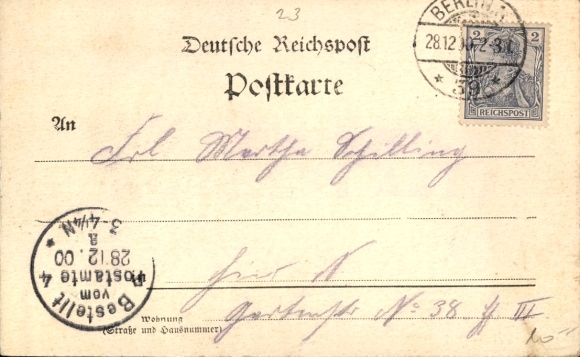 23
BERLIN
28.12.00 2-3N
* 39 *
2 2
REICHSPOST
Deutsche Reichspost
Postkarte
An
Frl Martha Schilling
Hier N
Wohnung
(Straße und Hausnummer)
Gartenstr No 38 III
Bestellt
vom
Postamte 4
28 12. 00
3-4¼N *